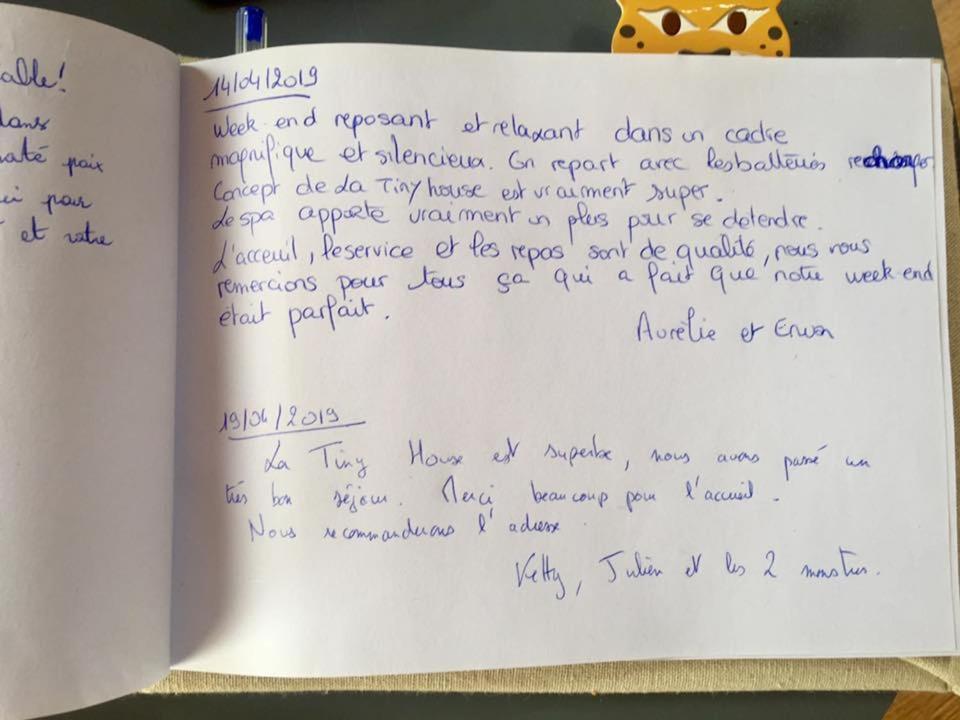 able!
dans
paix
pour
et votre
14/04/2019
Week end reposant et relaxant dans un cadre
magnifique et silencieux. On repart avec les batteries
Concept de La Tiny house est vraiment super.
Le spa apporte vraiment un plus pour se detendre.
L'acceuil, le service et les repas sont de qualité, nous vous
remercions pour tous ça qui a fait que notre week-end
était parfait.
Aurélie et Erwan
19/04/2019
La Tiny House est superbe, nous avons passé un
très bon séjour. Merci beaucoup pour l'accueil.
Nous recommanderons l'adresse
Ketty, Julien et les 2 monstres.